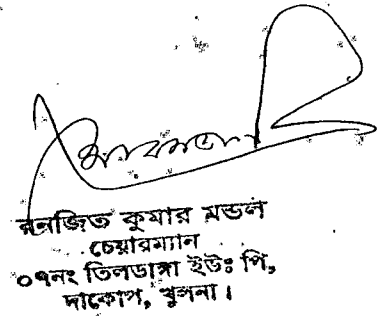 রনজিত কুমার মন্ডল
চেয়ারম্যান
০৭নং তিলডাঙ্গা ইউঃ পি,
দাকোপ, খুলনা।